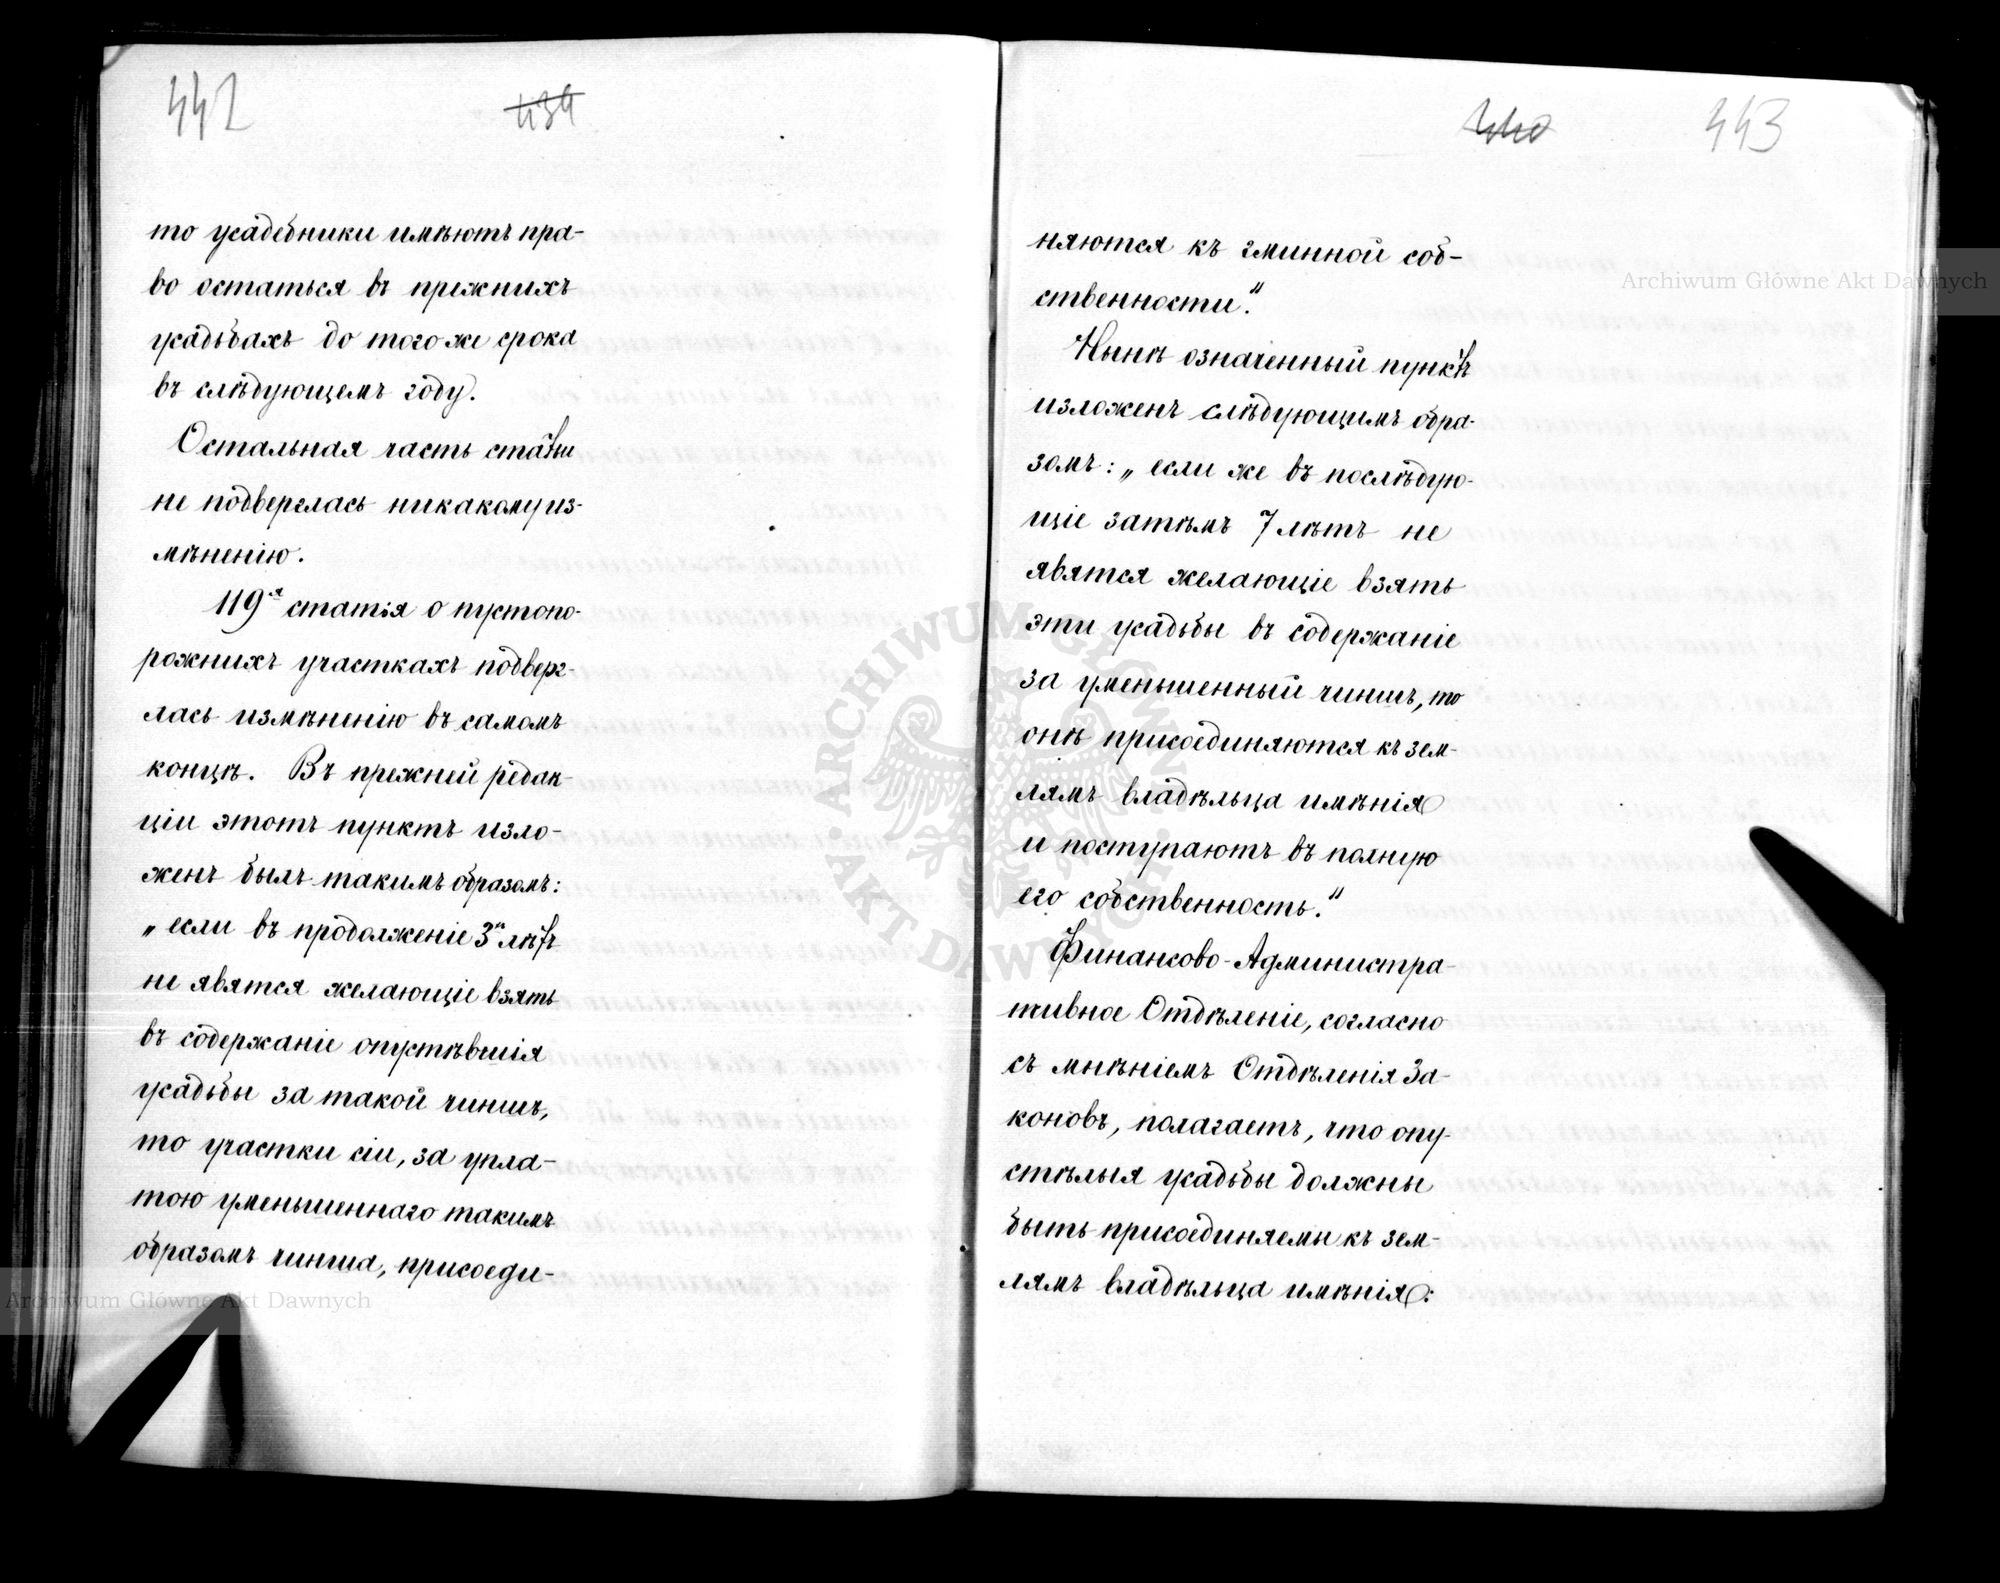 442
439
то усадебники имѣютъ пра-
во остаться въ прежнихъ
усадьбахъ до того же срока
въ слѣдующемъ году.
Остальная часть статьи
не подверглась никакому из-
мѣненію.
119я статья о пустопо-
рожнихъ участкахъ подверг-
лась измѣненію въ самомъ
концѣ. Въ прежней редак-
ціи этотъ пунктъ изло-
женъ былъ такимъ образомъ:
„если въ продолженіе 3хъ лѣтъ
не явятся желающіе взять
въ содержаніе опустѣвшія
усадьбы за такой чиншъ,
то участки сіи, за упла-
тою уменьшеннаго такимъ
образомъ чинша, присоеди-
440
443
няются къ гминной соб-
ственности."
Нынѣ означенный пунктъ
изложенъ слѣдующимъ обра-
зомъ: „если же въ послѣдую-
щіе затѣмъ 7 лѣтъ не
явятся желающіе взять
эти усадьбы въ содержаніе
за уменьшенный чиншъ, то
онѣ присоединяются къ зем-
лямъ владѣльца имѣнія
и поступаютъ въ полную
его собственность."
Финансово-Администра-
тивное Отдѣленіе, согласно
съ мнѣніемъ Отдѣленія За-
коновъ, полагаетъ, что опу-
стѣлыя усадьбы должны
быть присоединяемы къ зем-
лямъ владѣльца имѣнія:
Archiwum Główne Akt Dawnych
ARCHIWUM GŁÓWNE AKT DAWNYCH
Archiwum Główne Akt Dawnych